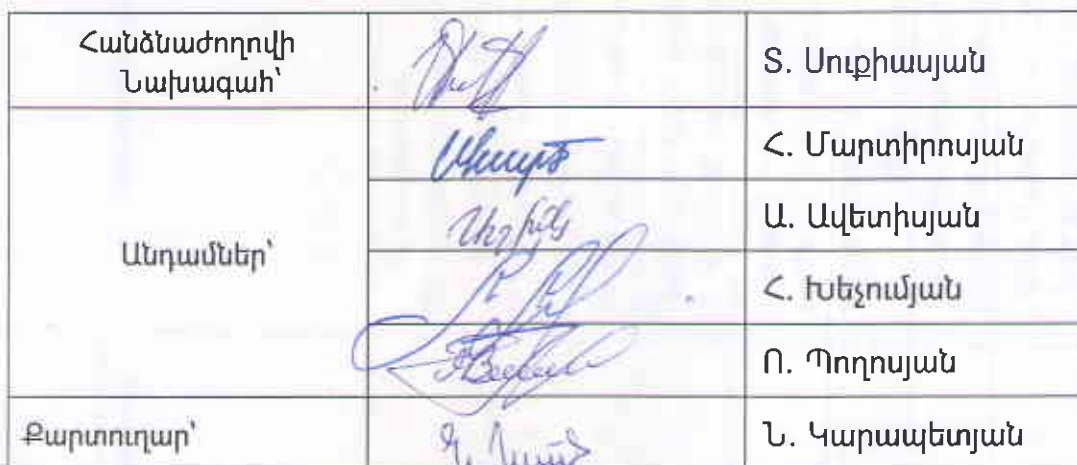 Հանձնաժողովի
Նախագահ՝
Տ. Սուքիասյան
Հ. Մարտիրոսյան
Ա. Ավետիսյան
Անդամներ՝
Հ. Խեչումյան
Ո. Պողոսյան
Քարտուղար՝
Ն. Կարապետյան